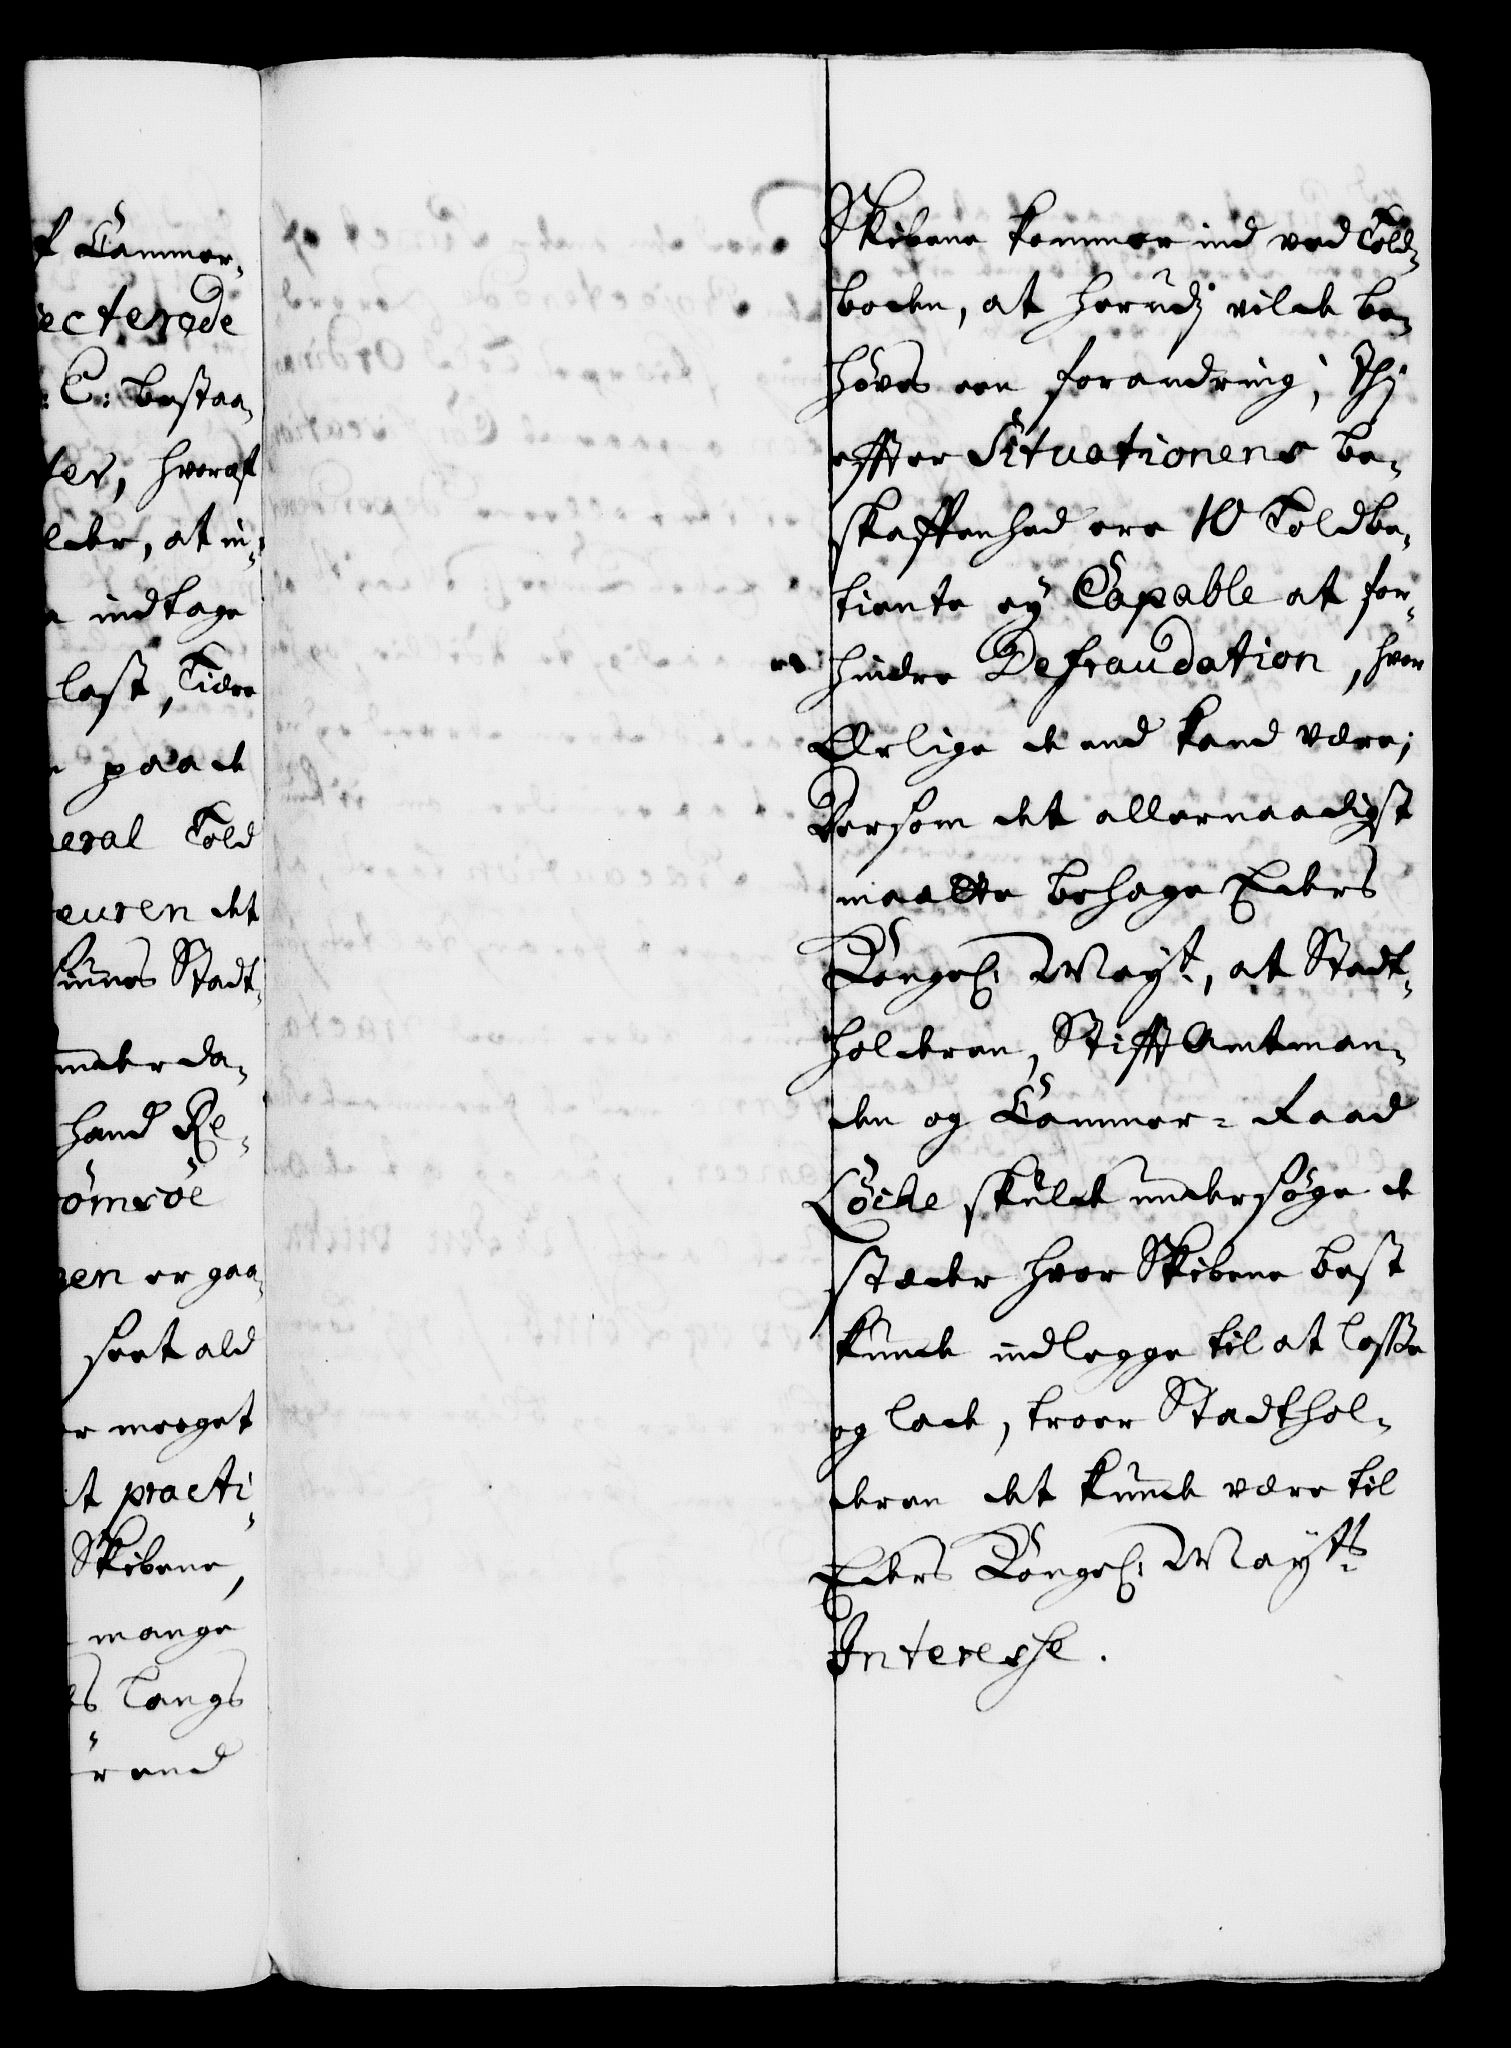 f Cammer-
ecterede
: C: bestaa-
ler, hveraf
lder, at in-
indtage
last, Tiære
paade
neral Told
euren det
Stadt-
under da-
hand Re-
Strömsöe
gen er gaa-
sert ald
r meeget
t practi-
Skibene,
mange
langs
rend
Skibene kommer ind ved Told-
boden, at herudj vilde be-
høves een forandring; Thj
effter Situationens be-
skaffenhed ere 10 Toldbe-
tiente ey Capable at for-
hindre Defraudation, hvor
Ærlige de end kand være;
Dersom det allernaadigst
maatte behage Eders
Kongel: Mayt, at Stadt-
holderen, Stifft Amtman-
den og Cammer-Raad
Löcke skulde undersøge de
stæder hvor Skibene best
kunde indlegge til at losse
og lade, troer Stadthol-
deren det kunde være til
Eders Kongel: Maytts
Interesse.